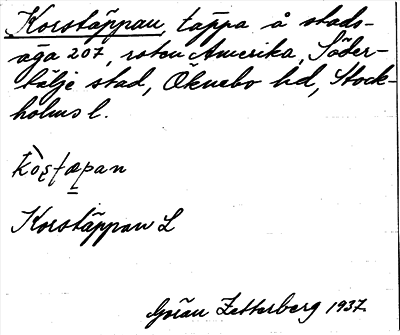 Korstäppan, täppa å stads-
äga 207, roten Amerika, Söder-
tälje stad, Öknebo hd, Stock-
holms l.
Korstäppan L
Göran Zetterberg 1937.